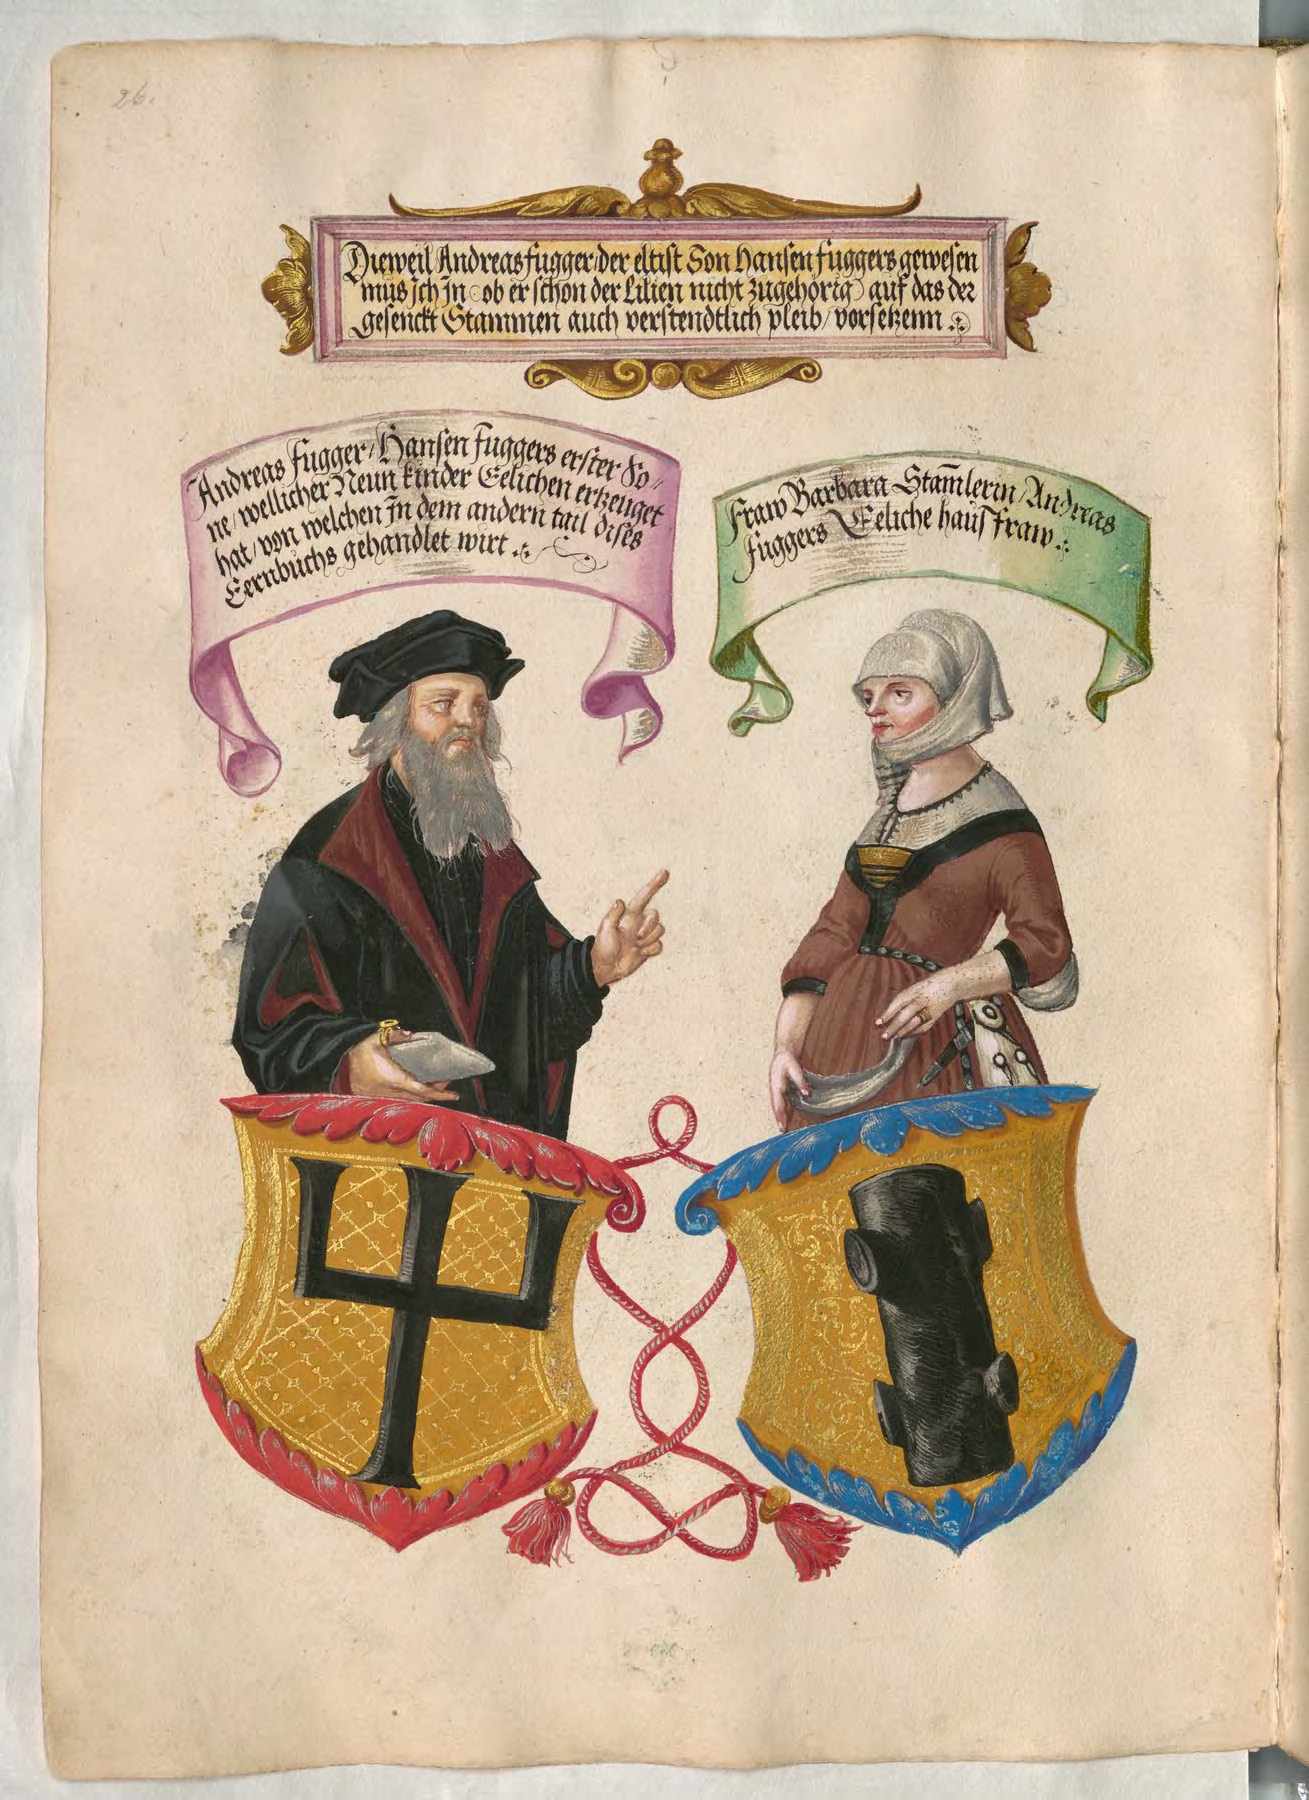 26.
Dieweil Andreas fugger/der eltist Son Hansen fuggers gewesen
mus Ich In (ob er schon der Lilien nicht zugehörig) auf das der
gesenckt Stammen auch verstendtlich pleib/vorsetzenn
Andreas Fugger/Hansen Fuggers erster So//
ne/wellicher Neun kinder Eelichen ertzeuget
hat/von welchen In dem andern tail dises
Eernbuchs gehandlet wirt.
Fraw Barbara Stam̃lerin/Andreas
Fuggers Eeliche hausfraw.